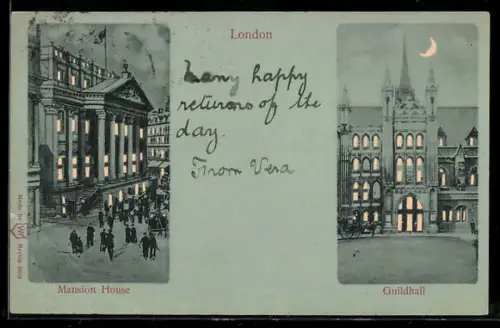 London
Many happy
returns of the
day.
From Vera
Mansion House
Guildhall
Made for